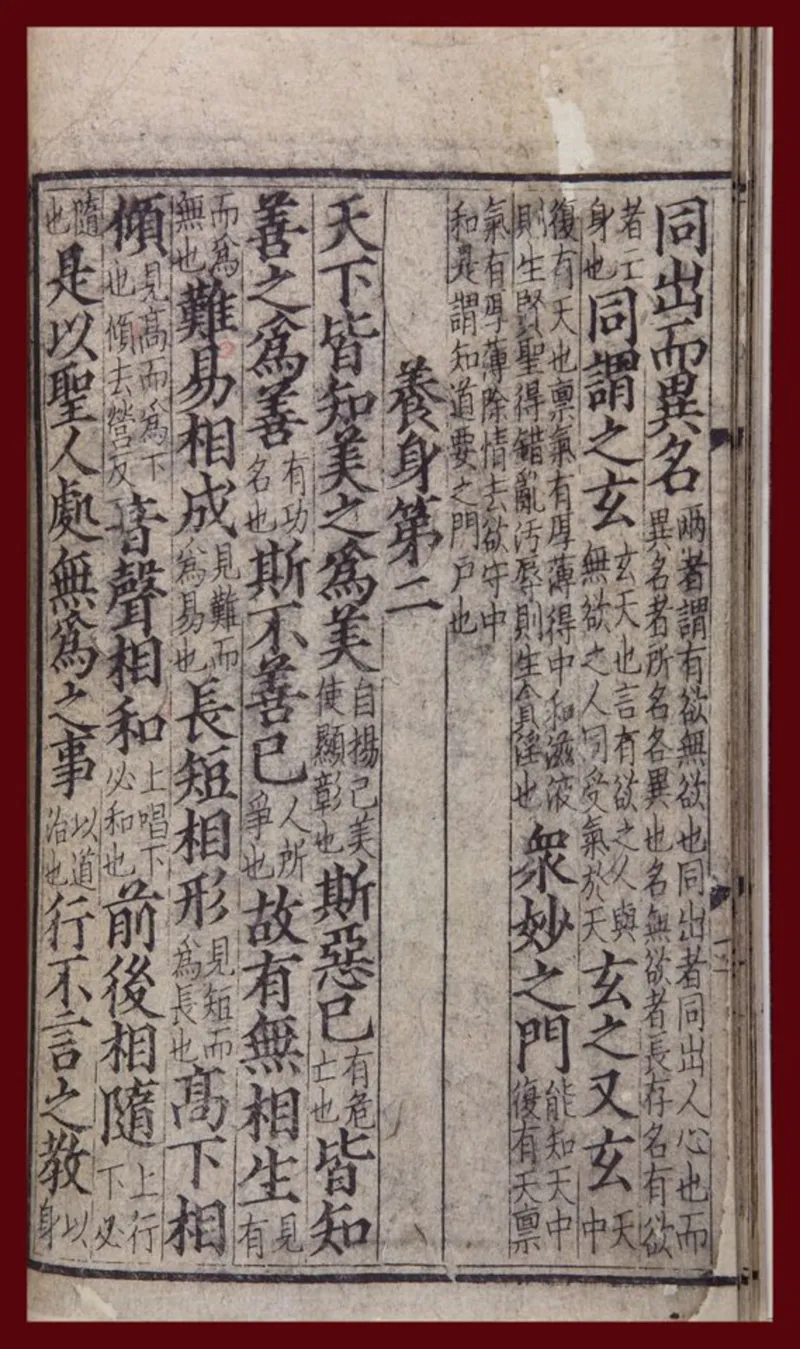 同出而異名兩者謂有欲無欲也同出者同出人心也而異名者所名各異也名無欲者長存名有欲
者亡身也同謂之玄玄天也言有欲之人與無欲之人同受氣於天玄之又玄天中
復有天也稟氣有厚薄得中和滋液則生賢聖得錯亂污辱則生貪淫也衆妙之門能知天中復有天稟
氣有厚薄除情去欲守中和是謂知道要之門戶也
養身第二
天下皆知美之爲美自揚己美使顯彰也斯惡已有危亡也皆知
善之爲善有功名也斯不善已人所爭也故有無相生見有
而爲無也難易相成見難而爲易也長短相形見短而爲長也髙下相
傾見髙而爲下也傾去營反音聲相和上唱下必和也前後相隨上行下必
隨也是以聖人處無爲之事以道治也行不言之教以身